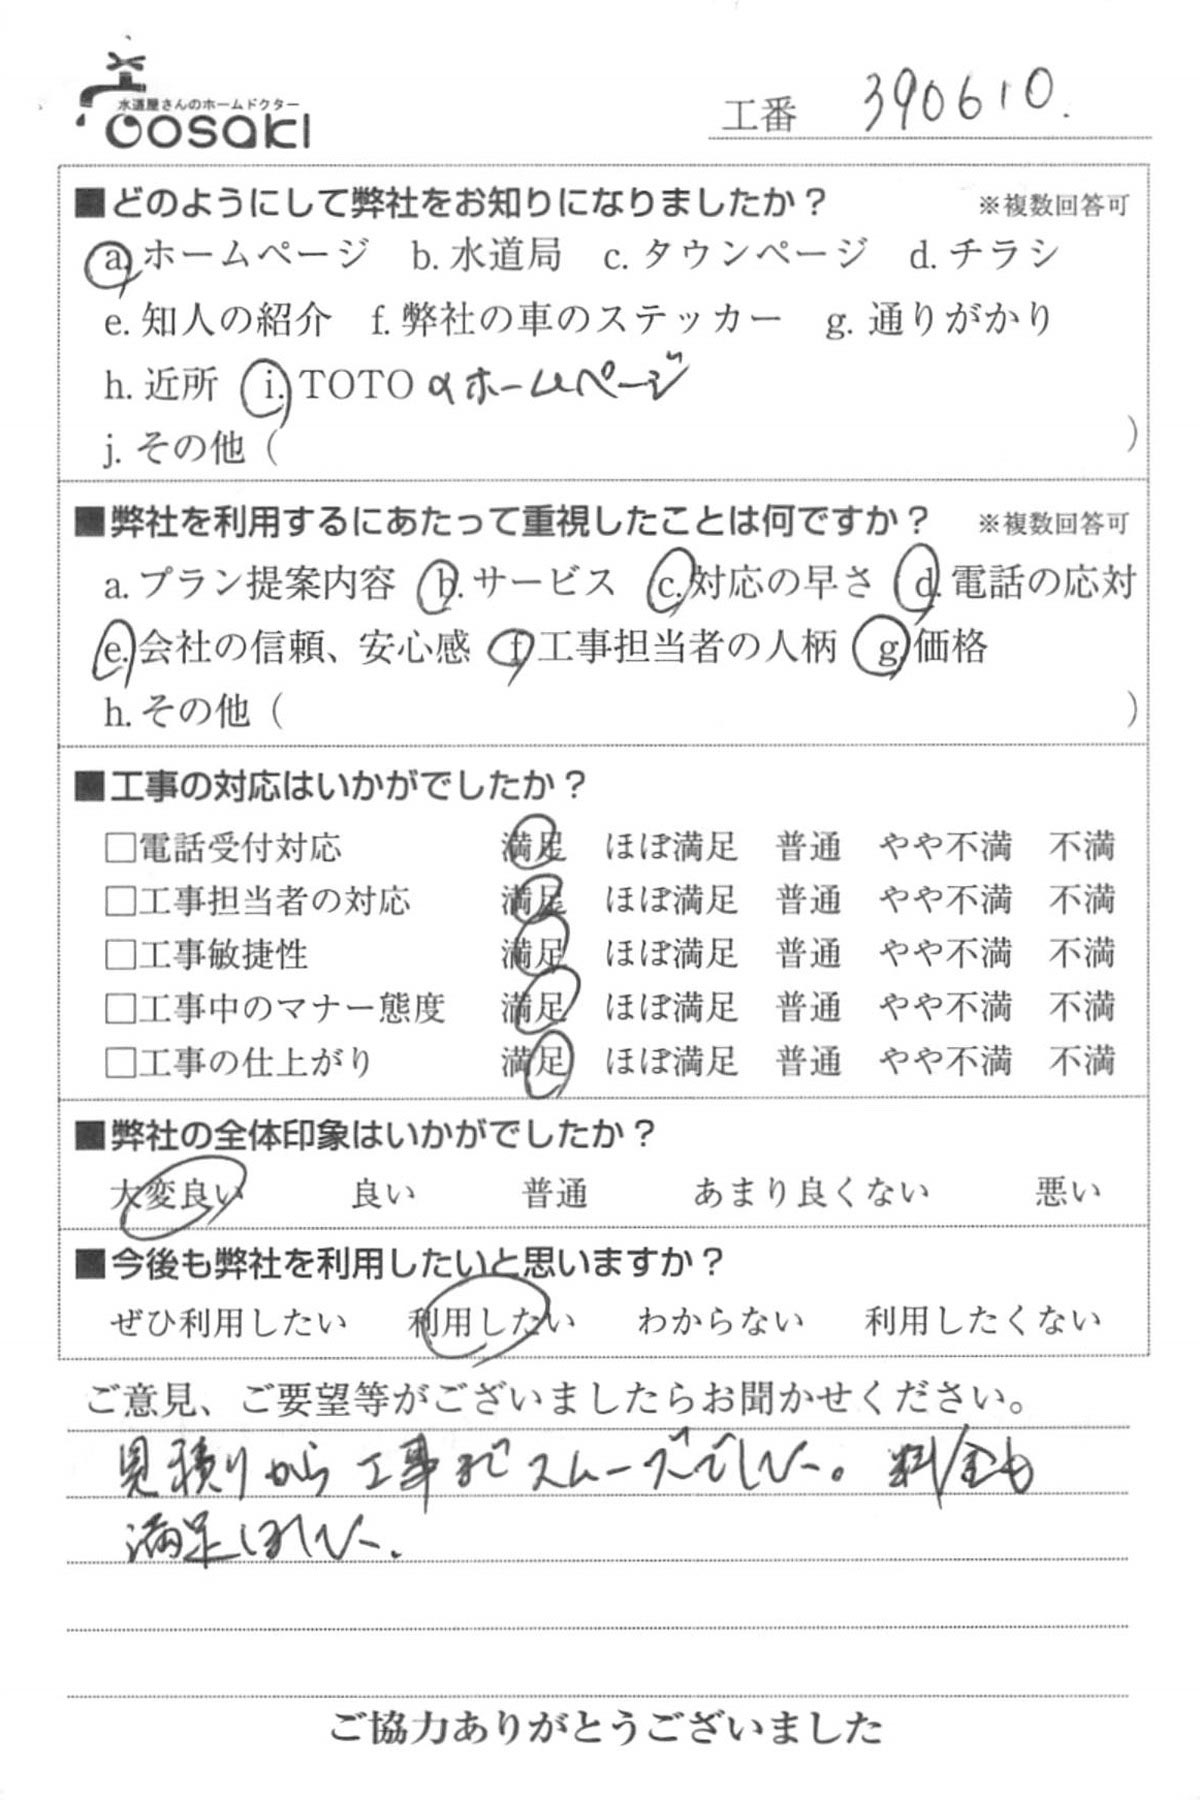 水道屋さんのホームドクター
oosaki
工番 390610.
■どのようにして弊社をお知りになりましたか？ ※複数回答可
a.ホームページ b.水道局 c.タウンページ d.チラシ
e.知人の紹介 f.弊社の車のステッカー g.通りがかり
h.近所 i.TOTO のホームページ
j.その他（ ）
■弊社を利用するにあたって重視したことは何ですか？ ※複数回答可
a.プラン提案内容 b.サービス c.対応の早さ d.電話の応対
e.会社の信頼、安心感 f.工事担当者の人柄 g.価格
h.その他（ ）
■工事の対応はいかがでしたか？
□電話受付対応 満足 ほぼ満足 普通 やや不満 不満
□工事担当者の対応 満足 ほぼ満足 普通 やや不満 不満
□工事敏捷性 満足 ほぼ満足 普通 やや不満 不満
□工事中のマナー態度 満足 ほぼ満足 普通 やや不満 不満
□工事の仕上がり 満足 ほぼ満足 普通 やや不満 不満
■弊社の全体印象はいかがでしたか？
大変良い 良い 普通 あまり良くない 悪い
■今後も弊社を利用したいと思いますか？
ぜひ利用したい 利用したい わからない 利用したくない
ご意見、ご要望等がございましたらお聞かせください。
見積りから工事までスムーズでした。料金も
満足しました.
ご協力ありがとうございました